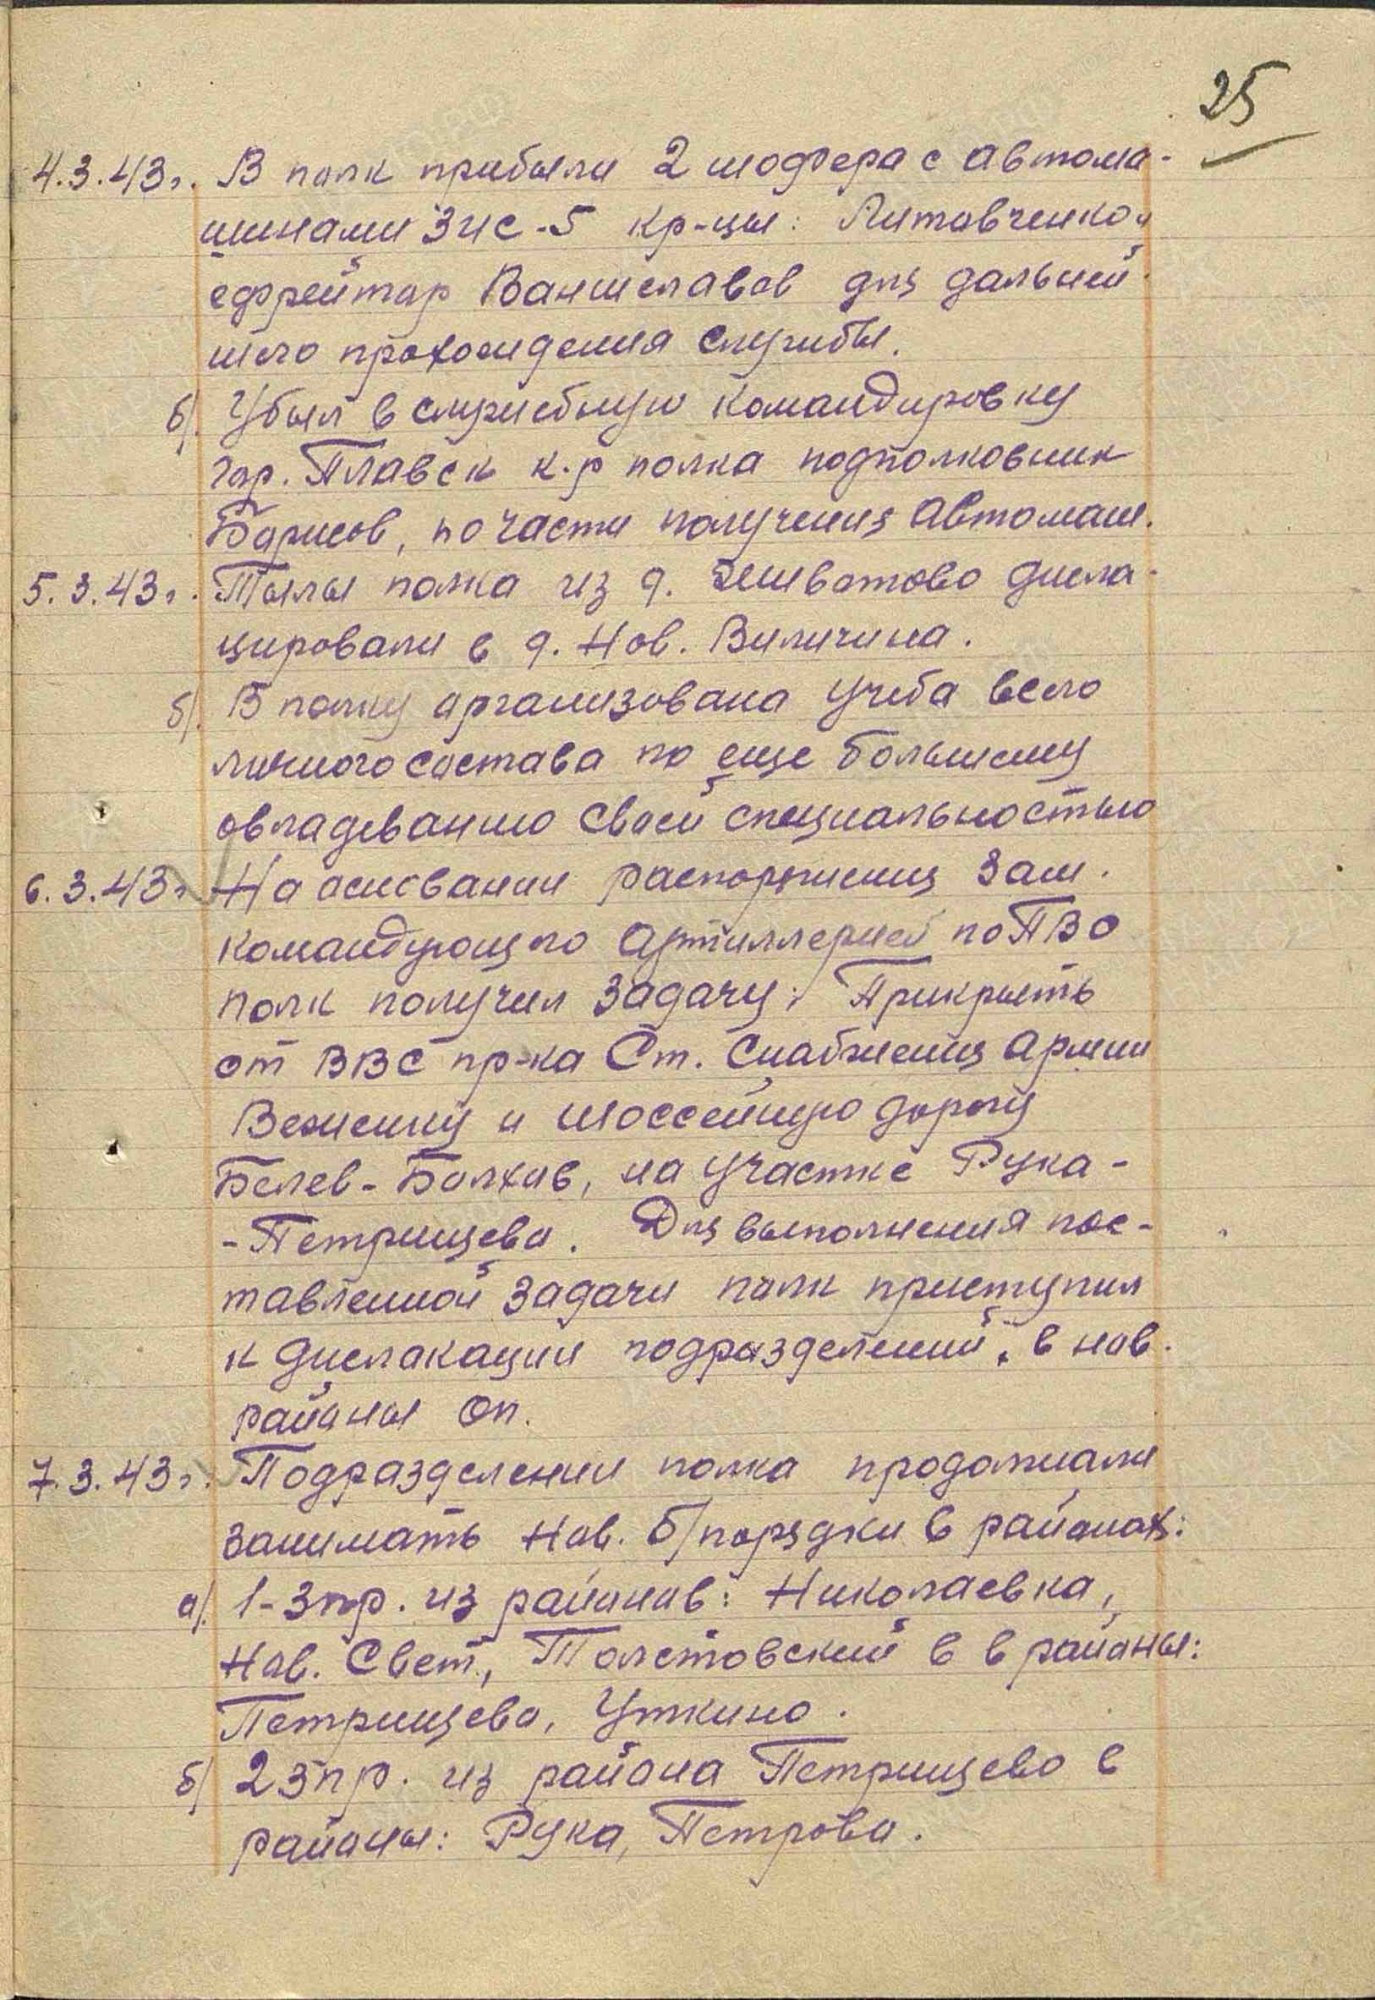 25
4.3.43г. В полк прибыли 2 шофера с автома-
шинами ЗИС-5 кр-цы: Литовченко и
ефрейтор Ваншелавов для дальней
шего прохождения службы.
б/. Убыл в служебную командировку
гор. Плавск к-р полка подполковник
Борисов, по части получения автомаш.
5.3.43г. Тылы полка из д. дисла-
цировали в д. Нов. Виличина.
б/. В полку организована учеба всего
личного состава по еще большему
овладеванию своей специальностью
6.3.43г На основании распоряжения Зам.
командующего артиллерией по ПВО
полк получил задачу: Прикрыть
от ВВС пр-ка Ст. Снабжения Армии
Веженку и шоссейную дорогу
Белев-Болхов, на участке Рука-
-Петрищево. Для выполнения пос-
тавленной задачи полк приступил
к дислокации подразделений, в нов.
районы ОП.
7.3.43г. Подразделении полка продолжали
занимать нов. б/порядки в районах:
а/. 1-3пр. из районов: Николаевка,
Нов. Свет, Толстовский в в районы:
Петрищево, Уткино.
б/ 2 зпр. из района Петрищево в
районы: Рука, Петрово.